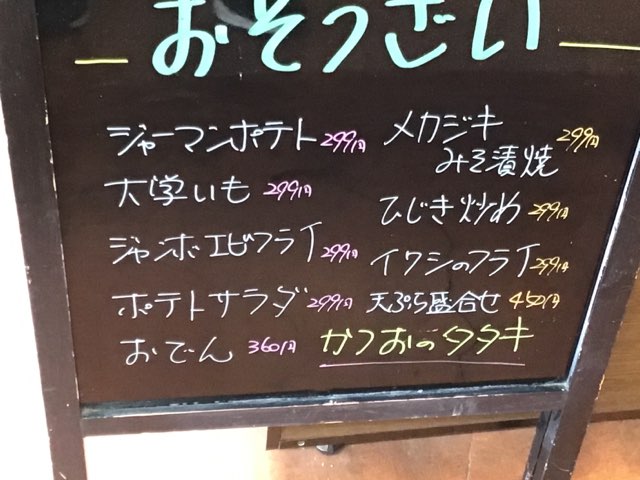 おそうざい
ジャーマンポテト 299円
大学いも 299円
ジャンボエビフライ 299円
ポテトサラダ 299円
おでん 360円
メカジキ
みそ漬焼 299円
ひじき炒め 299円
イワシのフライ 299円
天ぷら盛合せ 450円
かつおのタタキ